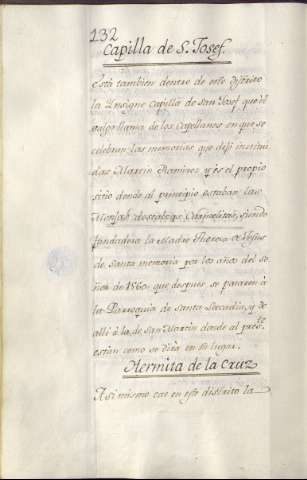 132
Capilla de S. Josef.
Está tambien dentro de este distrito
la Insigne Capilla de San Josef que
de los Capellanes en que se
celebran las memorias que dejó institui
das Martin Ramirez y es el propio
sitio donde al principio estaban las
Monjas descalzas Carmelitas, siendo
fundadora la Madre Theresa de Jesus
de Santa memoria por los años del se
ñor de 1560. que despues se pasaron á
la Parroquia de Santa Leocadia, y de
alli á la de San Martin donde al pres.te
estan como se dirá en su lugar.
Hermita de la Cruz
Asi mismo cae en este distrito la